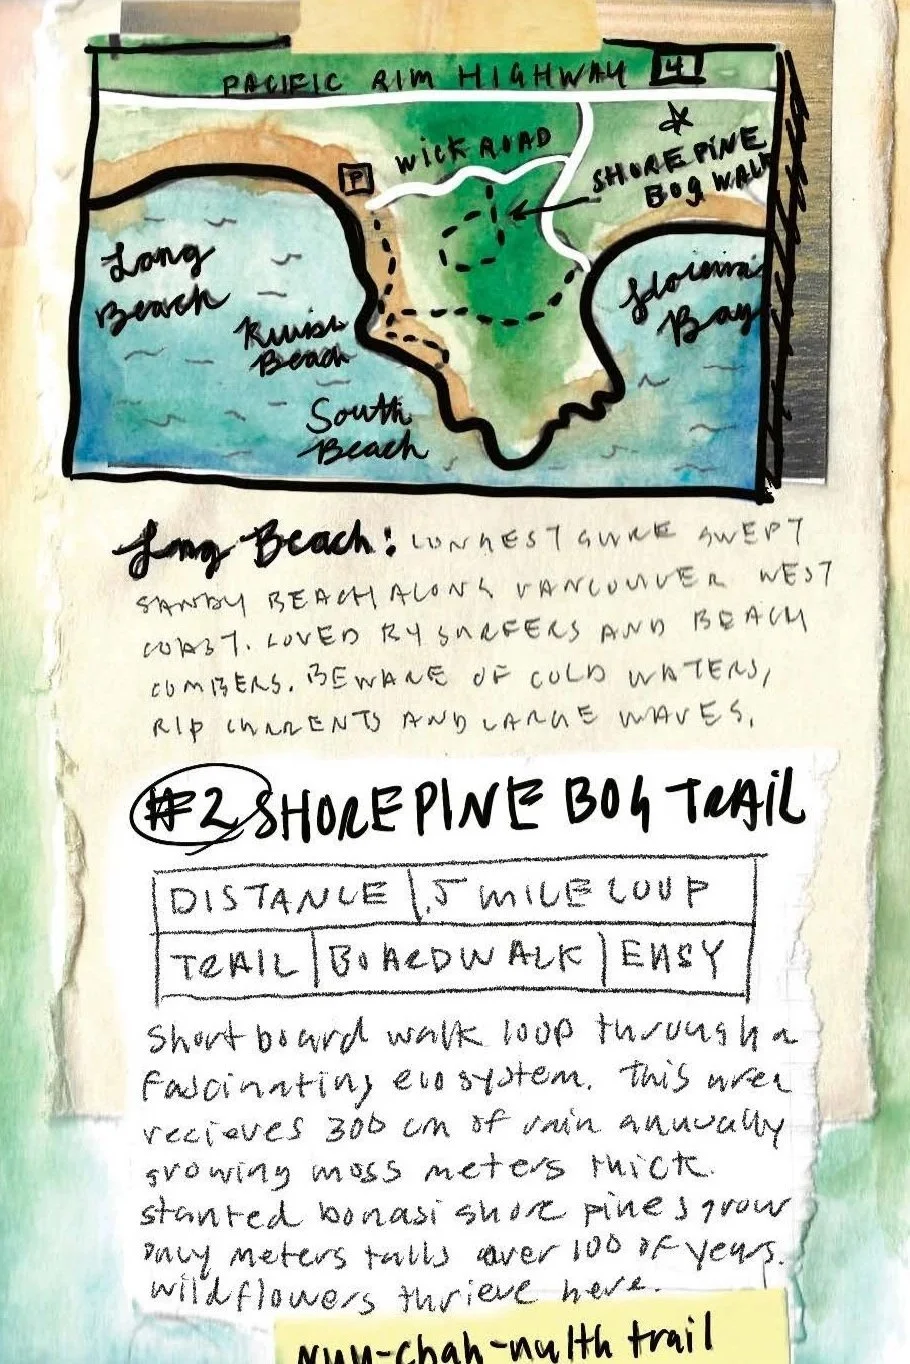 PACIFIC RIM HIGHWAY 4
WICK ROAD
P
SHOREPINE
BOG WALK
Long
Beach
Beach
South
Beach
Bay
Long Beach: LONGEST SURF SWEPT
SANDY BEACH ALONG VANCOUVER WEST
COAST. LOVED BY SURFERS AND BEACH
COMBERS. BEWARE OF COLD WATERS,
RIP CURRENTS AND LARGE WAVES.
#2 SHOREPINE BOG TRAIL
DISTANCE .5 MILE LOOP
TRAIL BOARDWALK EASY
Short board walk loop through a
fascinating eco system. This area
recieves 300 cm of rain annually
growing moss meters thick.
stanted bonasi shore pines grow
only meters talls over 100 of years.
wildflowers thrieve here.
nuu-chah-nulth trail